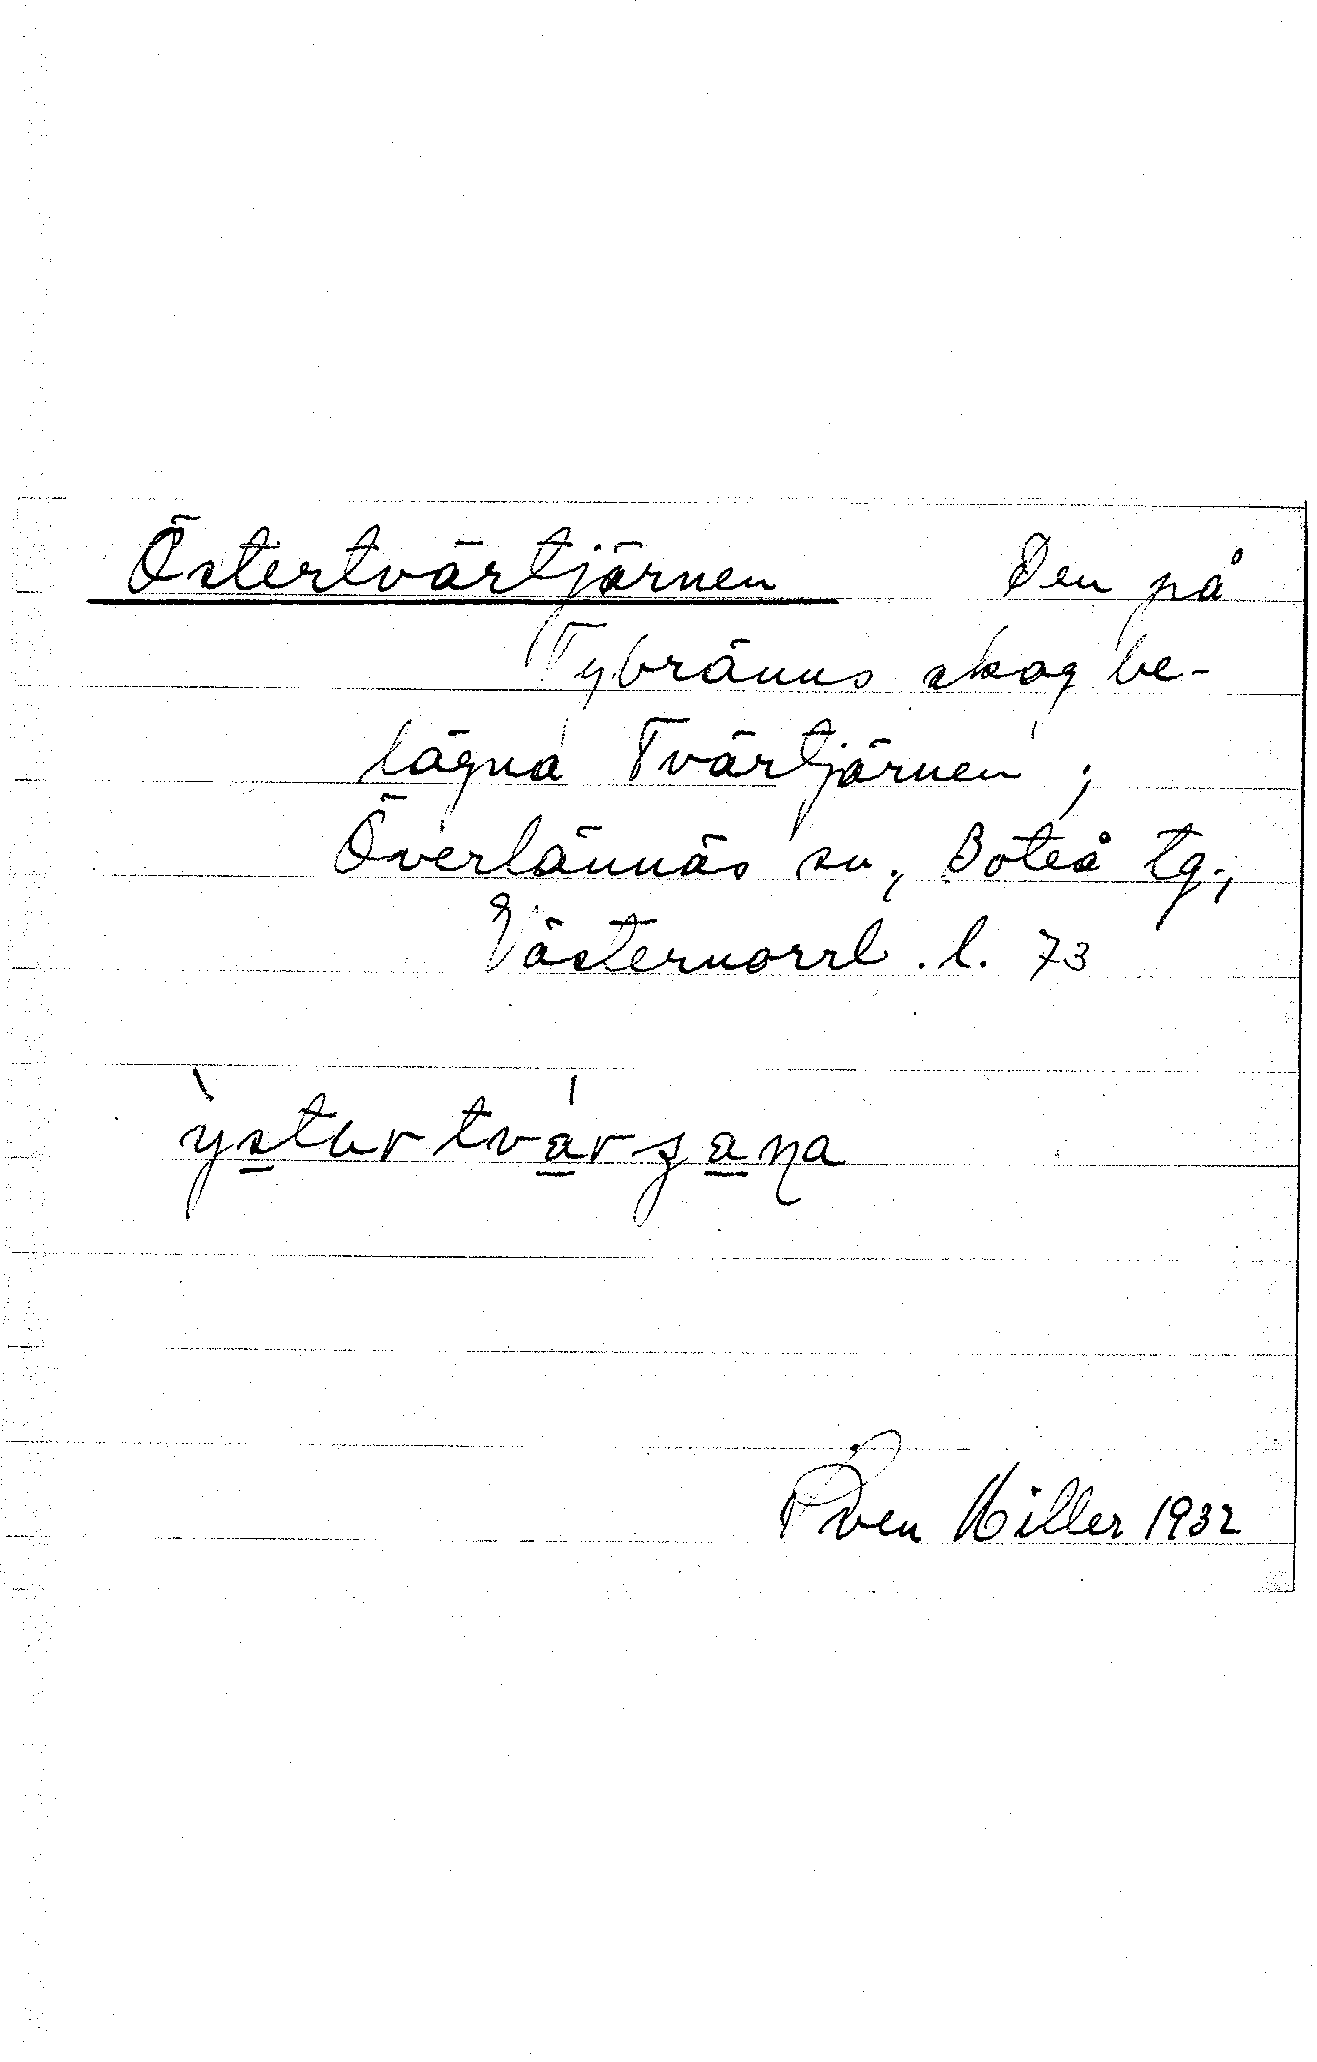 Östertvärtjärnen Den på
Tybränns skog be-
lägna Tvärtjärnen;
Överlännäs sn, Boteå tg.,
Västernorrl. l. 73
Sven Hiller 1932